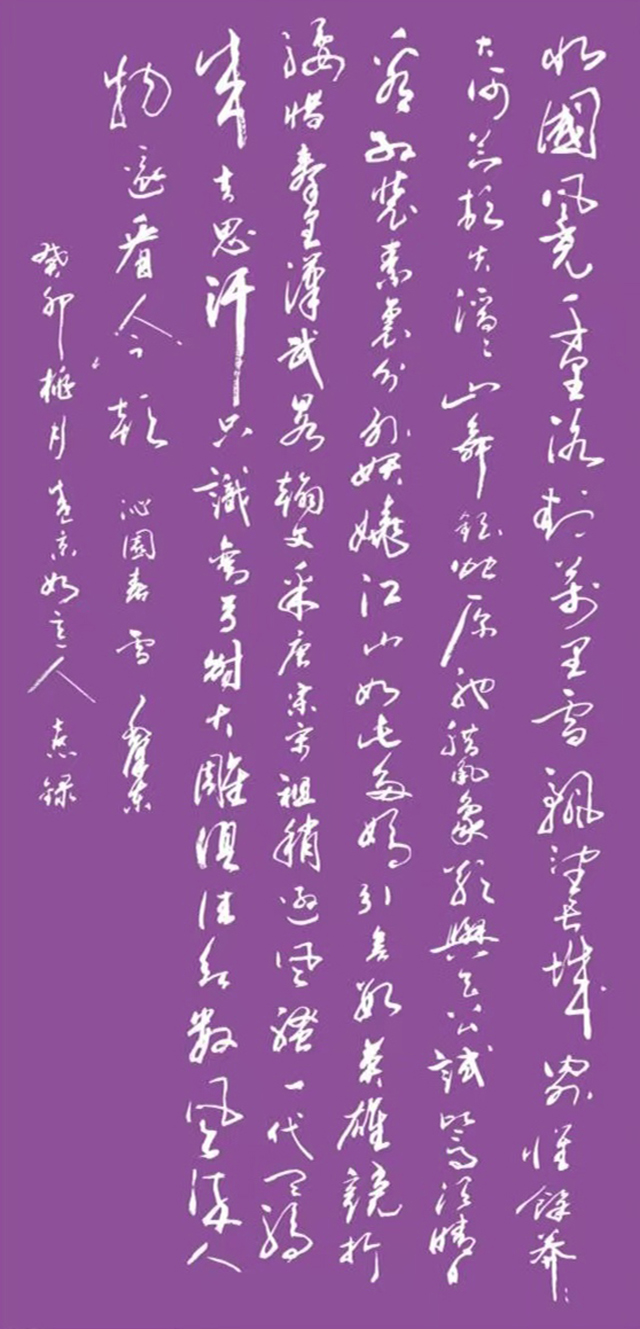 北國風光千里冰封萬里雪飄望長城内外惟餘莽〻
大河上下頓失滔〻山舞銀蛇原馳臘象欲與天公試比高須晴日
看紅裝素裹分外妖嬈江山如此多嬌引無數英雄競折
腰惜秦皇漢武略輸文采唐宗宋祖稍遜風騷一代天驕
成吉思汗只識彎弓射大雕俱往矣數風流人
物還看今朝 沁園春雪
癸卯桃月 京如意人 録